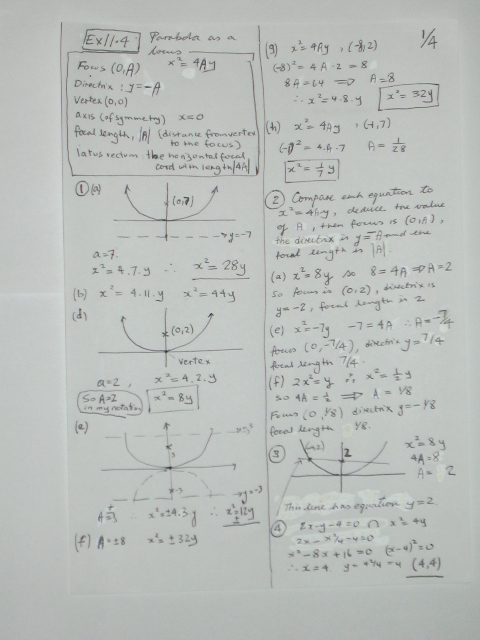 Ex 11.4
Parabola as a locus
Focus (0,A) x² = 4Ay
Directrix : y = -A
Vertex (0,0)
axis (of symmetry) x=0
focal length, |A| (distance from vertex to the focus)
latus rectum the horizontal focal cord with length |4A|
① (a)
(0,7)
y=-7
a=7.
x² = 4.7.y ∴ x² = 28y
(b) x² = 4.11.y x² = 44y
(d)
(0,2)
vertex
a=2, x² = 4.2.y
So A=2 in my notation
x² = 8y
(e)
y=-3
A=±3 ∴ x²=±4.3.y ∴ x²=±12y
(f) A=±8 x² = ±32y
1/4
(g) x² = 4Ay, (-8,2)
(-8)² = 4A·2 = 8
8A = 64 ⟹ A=8
∴ x²=4.8.y x² = 32y
(h) x² = 4Ay, (-1,7)
(-1)² = 4A·7 A = 1/28
x² = 1/7 y
② Compare each equation to
x² = 4Ay, deduce the value
of A, then focus is (0,A),
the directrix is y=-A and the
focal length is |A|.
(a) x²=8y so 8=4A⟹A=2
So focus is (0,2), directrix is
y=-2, focal length is 2
(e) x²=-7y -7=4A ∴ A=-7/4
focus (0,-7/4), directrix y=7/4
focal length 7/4.
(f) 2x²=y ∴ x²=½y
so 4A=½ ⟹ A=1/8
Focus (0,1/8) directrix y=-1/8
focal length 1/8.
③
2
x²=8y
4A=8
A=2
This line has equation y=2.
④ 2x-y-4=0 ∩ x²=4y
2x-x²/4-4=0
x²-8x+16=0 (x-4)²=0
∴ x=4 y=4²/4=4 (4,4)